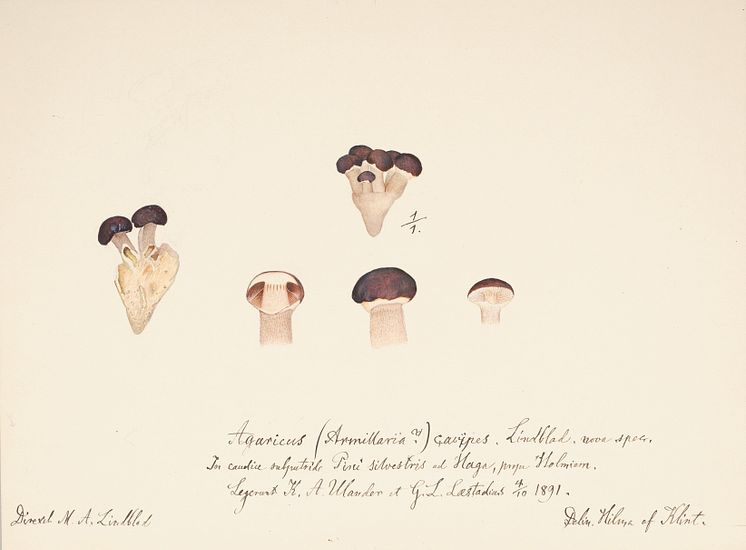 1/1.
Agaricus (Armillaria ?) cavipes. Lindblad. nova spec.
In caudice subputrido Pini silvestris ad Haga, prope Holmiam.
Legerunt K. A. Ulander et G. L. Læstadius 4/10 1891.
Direxit M. A. Lindblad
Delin. Hilma af Klint.